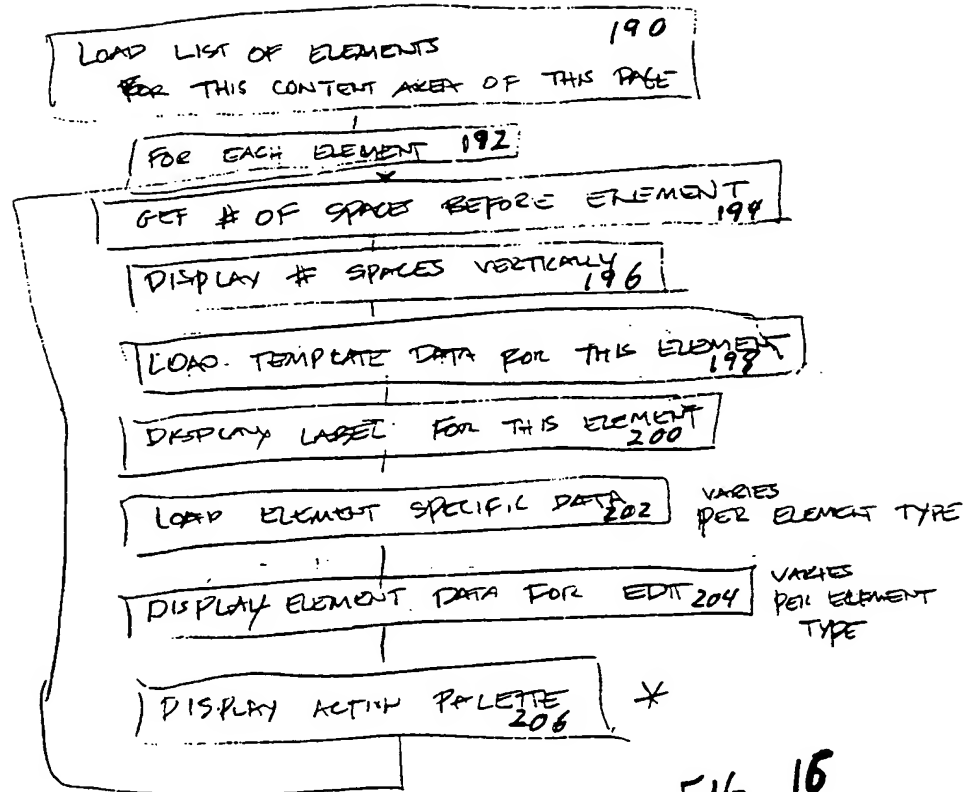 LOAD LIST OF ELEMENTS 190
FOR THIS CONTENT AREA OF THIS PAGE
FOR EACH ELEMENT 192
GET # OF SPACES BEFORE ELEMENT 194
DISPLAY # SPACES VERTICALLY 196
LOAD TEMPLATE DATA FOR THIS ELEMENT 198
DISPLAY LABEL FOR THIS ELEMENT 200
LOAD ELEMENT SPECIFIC DATA 202
VARIES
PER ELEMENT TYPE
DISPLAY ELEMENT DATA FOR EDIT 204
VARIES
PER ELEMENT
TYPE
DISPLAY ACTION PALETTE 206 *
FIG.